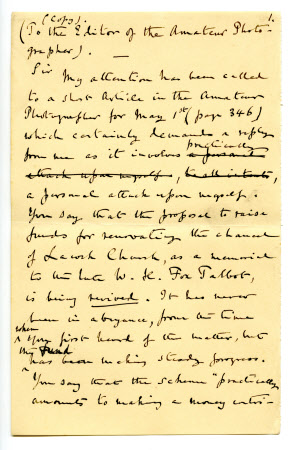 (Copy). 1.
(To the Editor of the Amateur Photo-
grapher). —
Sir
My attention has been called
to a short Article in the Amateur
Photographer for May 1st (page 346)
which certainly demands a reply
from me as it involves practically a personal
attack upon myself, to all intents,
a personal attack upon myself.
You say that the proposal to raise
funds for renovating the chancel
of Lacock Church, as a memorial
to the late W. H. Fox Talbot,
is being revived. It has never
been in abeyance, from the time
when you first heard of the matter, but
my Fund
has been making steady progress.
You say that the scheme "practically
amounts to making a money contri-